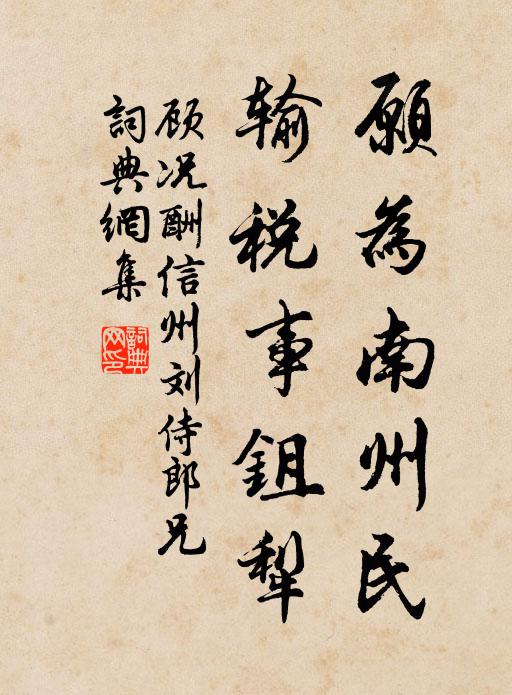 願為南州民
输税事鉏犁
顾况酬信州刘侍郎兄
詞典網集
詞典網印